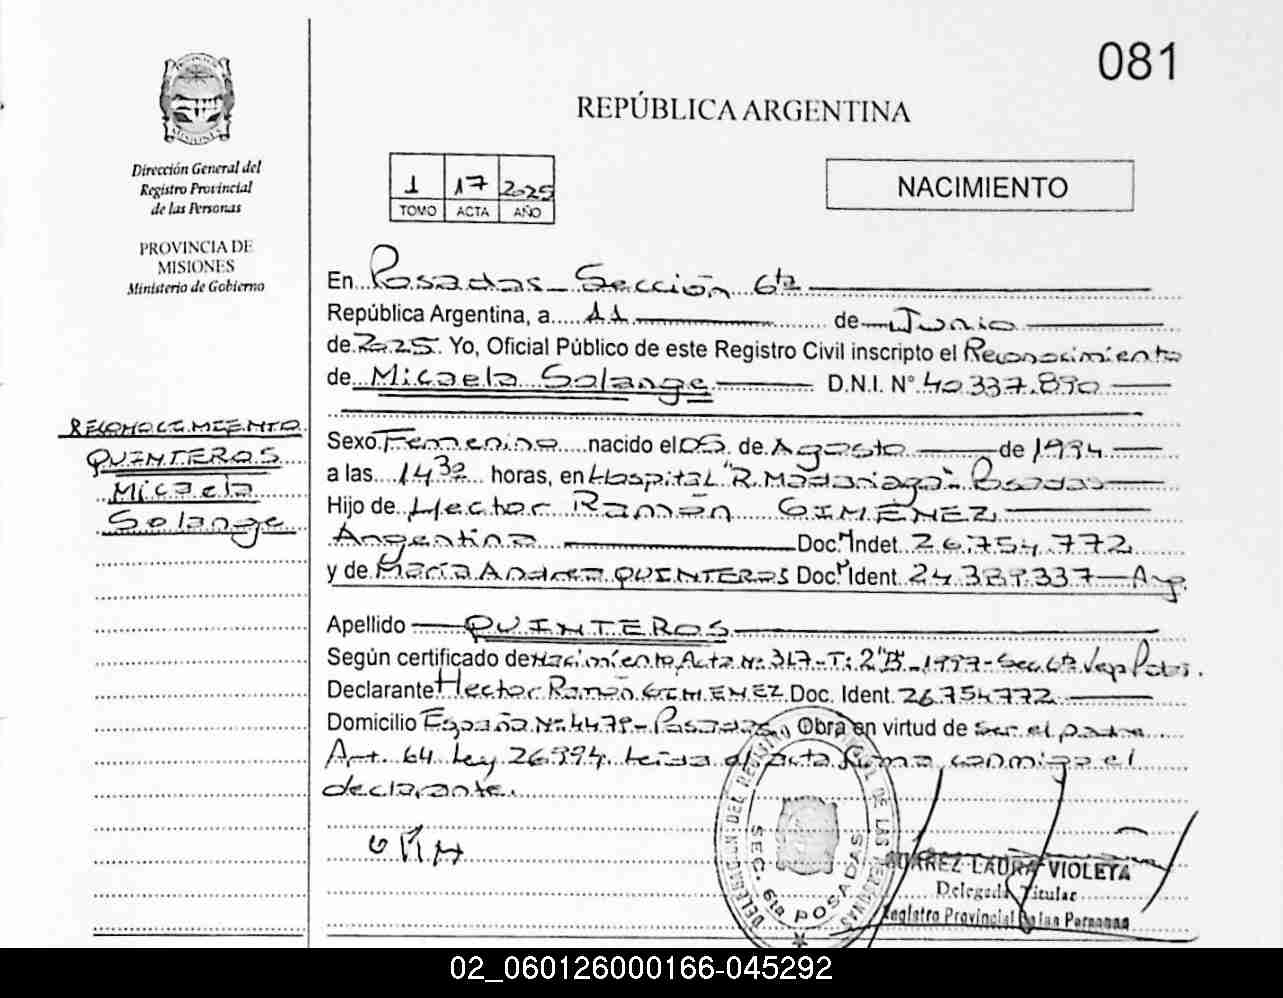 081
REPÚBLICA ARGENTINA
Dirección General del
Registro Provincial
de las Personas
PROVINCIA DE
MISIONES
Ministerio de Gobierno
1 17 2025
TOMO ACTA AÑO
NACIMIENTO
En Posadas - Sección 6ta
República Argentina, a 11 de Junio
de 2025. Yo, Oficial Público de este Registro Civil inscripto el Reconocimiento
de Micaela Solange D.N.I. N° 40.337.890
RECONOCIMIENTO
QUINTEROS
Micaela
Solange
Sexo Femenino nacido el 05 de Agosto de 1994
a las 14 30 horas, en Hospital "R. Madariaga" - Posadas
Hijo de Hector Ramón GIMÉNEZ
Argentino Doc. Indet. 26.754.772
y de María Andrea QUINTEROS Doc. Ident. 24.389.337 - Arg.
Apellido QUINTEROS
Según certificado de Nacimiento, Acta N: 317 - T: 2 "B" - 1997 - Sec. 6ta
Declarante Hector Ramón GIMENEZ Doc. Ident. 26.754.772
Domicilio España N: 4479 - Posadas. Obra en virtud de ser el padre
Art. 64 Ley 26994. Leída el acta firma conmigo el
declarante.
DELEGACION DEL REGISTRO PROVINCIAL DE LAS PERSONAS
SEC. 6ta POSADAS
SUAREZ LAURA VIOLETA
Delegada Titular
Registro Provincial de las Personas
02_060126000166-045292